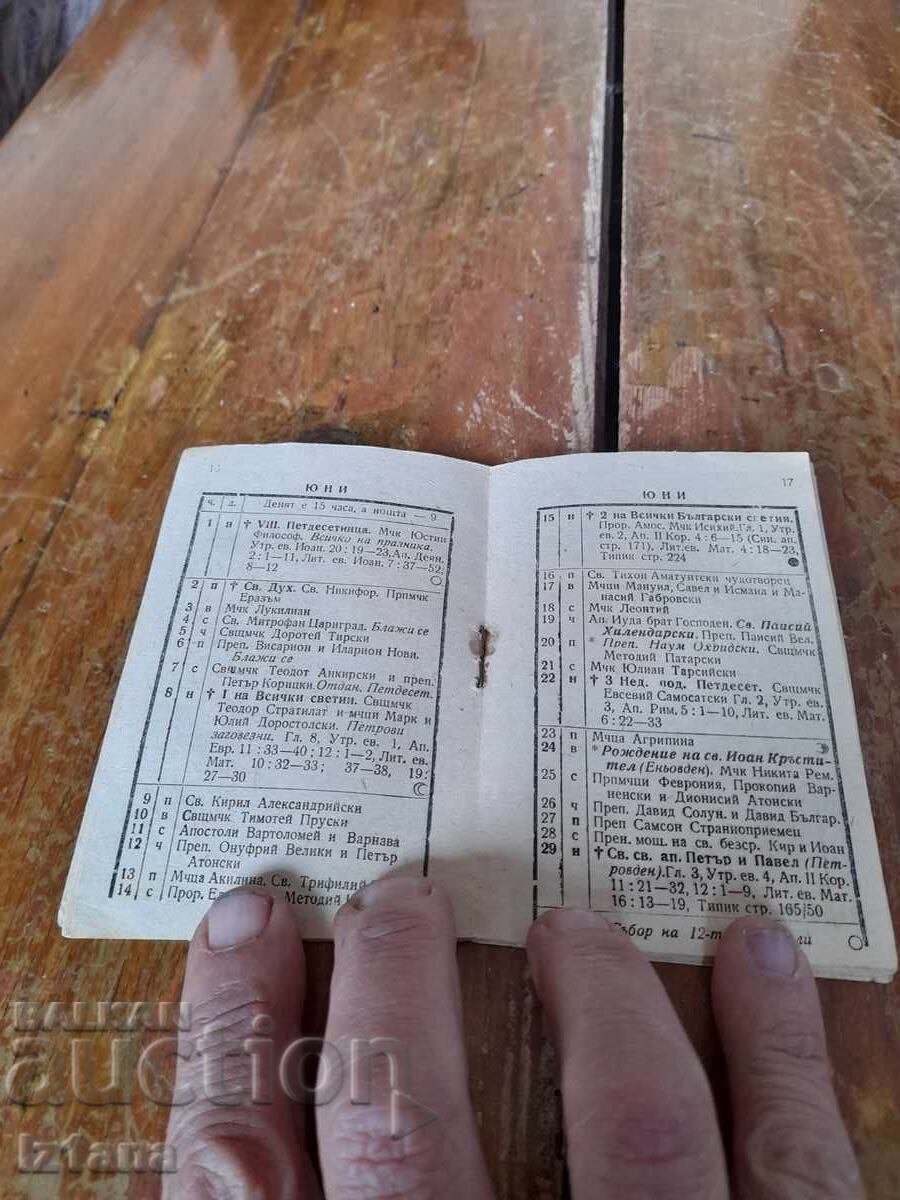 ЮНИ
ч. д. Денят е 15 часа, а нощта — 9
1 н † VIII. Петдесетница. Мчк Юстин
Философ. Всичко на пралника.
Утр. ев. Иоан. 20 : 19—23, Ап. Деян.
2 : 1—11, Лит. ев. Иоан. 7 : 37—52,
8—12
2 п † Св. Дух. Св. Никифор. Прпмчк
Еразъм
3 в Мчк Лукилиан
4 с Св. Митрофан Цариград. Блажи се
5 ч Свщмчк Доротей Тирски
6 п Преп. Висарион и Иларион Нови.
Блажи се
7 с Свщмчк Теодот Анкирски и преп.
Петър Коришки. Отдан. Петдесет.
8 н † I на Всички светии. Свщмчк
Теодор Стратилат и мчци Марк и
Юлий Доростолски. Петрови
заговезни. Гл. 8, Утр. ев. 1, Ап.
Евр. 11 : 33—40; 12 : 1—2, Лит. ев.
Мат. 10 : 32—33; 37—38, 19 :
27—30
9 п Св. Кирил Александрийски
10 в Свщмчк Тимотей Пруски
11 с Апостоли Вартоломей и Варнава
12 ч Преп. Онуфрий Велики и Петър
Атонски
13 п Мчца Акилина. Св. Трифилий
14 с Прор. Методий
17
ЮНИ
15 н † 2 на Всички Български светии.
Прор. Амос. Мчк Исихий. Гл. 1, Утр.
ев. 2, Ап. II Кор. 4 : 6—15 (Син. ап.
стр. 171), Лит. ев. Мат. 4 : 18—23,
Типик стр. 224
16 п Св. Тихон Аматунтски чудотворец
17 в Мчци Мануил, Савел и Исмаил и Ма-
насий Габровски
18 с Мчк Леонтий
19 ч Ап. Иуда брат Господен. Св. Паисий
Хилендарски. Преп. Паисий Вел.
20 п * Преп. Наум Охридски. Свщмчк
Методий Патарски
21 с Мчк Юлиан Тарсийски
22 н † 3 Нед. под. Петдесет. Свщмчк
Евсевий Самосатски Гл. 2, Утр. ев.
3, Ап. Рим. 5 : 1—10, Лит. ев. Мат.
6 : 22—33
23 п Мчца Агрипина
24 в * Рождение на св. Иоан Кръсти-
тел (Еньовден). Мчк Никита Рем.
25 с Прпмчци Феврония, Прокопий Вар-
ненски и Дионисий Атонски
26 ч Преп. Давид Солун. и Давид Българ.
27 п Преп Самсон Странноприемец
28 с Прен. мощ. на св. безср. Кир и Иоан
29 н † Св. св. ап. Петър и Павел (Пе-
тровден). Гл. 3, Утр. ев. 4, Ап. II Кор.
11 : 21—32, 12 : 1—9, Лит. ев. Мат.
16 : 13—19, Типик стр. 165/50
Събор на 12-т
BALKAN
auction
iztana